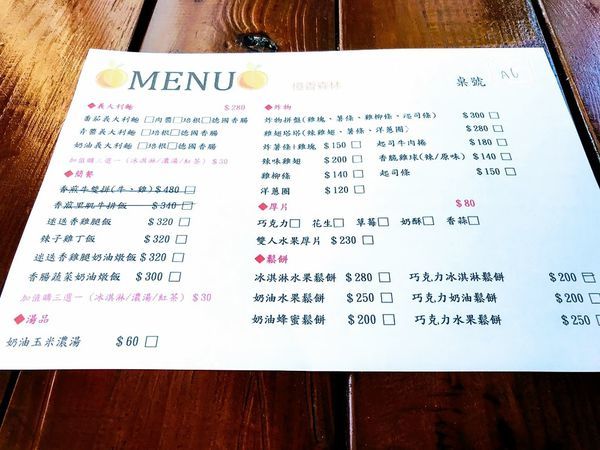 MENU
橙香森林
桌號 A6
◆義大利麵 $280
番茄義大利麵 □肉醬□培根□德國香腸
青醬義大利麵 □培根□德國香腸
奶油義大利麵 □培根□德國香腸
加值購三選一 (冰淇淋/濃湯/紅茶) $30
◆簡餐
香煎牛雙拼(牛、雞) $480 □
香滋里肌牛排飯 $340 □
迷迭香雞腿飯 $320 □
辣子雞丁飯 $320 □
迷迭香雞腿奶油燉飯 $320 □
香腸蔬菜奶油燉飯 $300 □
加值購三選一 (冰淇淋/濃湯/紅茶) $30
◆湯品
奶油玉米濃湯 $60 □
◆炸物
炸物拼盤(雞塊、薯條、雞柳條、起司條) $300 □
雞翅塔塔(辣雞翅、薯條、洋蔥圈) $280 □
炸薯條+雞塊 $150 □ 起司牛肉捲 $180 □
辣味雞翅 $200 □ 香脆雞球(辣/原味) $140 □
雞柳條 $140 □ 起司條 $150 □
洋蔥圈 $120 □
◆厚片 $80
巧克力□ 花生□ 草莓□ 奶酥□ 香蒜□
雙人水果厚片 $230 □
◆鬆餅
冰淇淋水果鬆餅 $280 □ 巧克力冰淇淋鬆餅 $200 □
奶油水果鬆餅 $250 □ 巧克力奶油鬆餅 $200 □
奶油蜂蜜鬆餅 $200 □ 巧克力水果鬆餅 $250 □